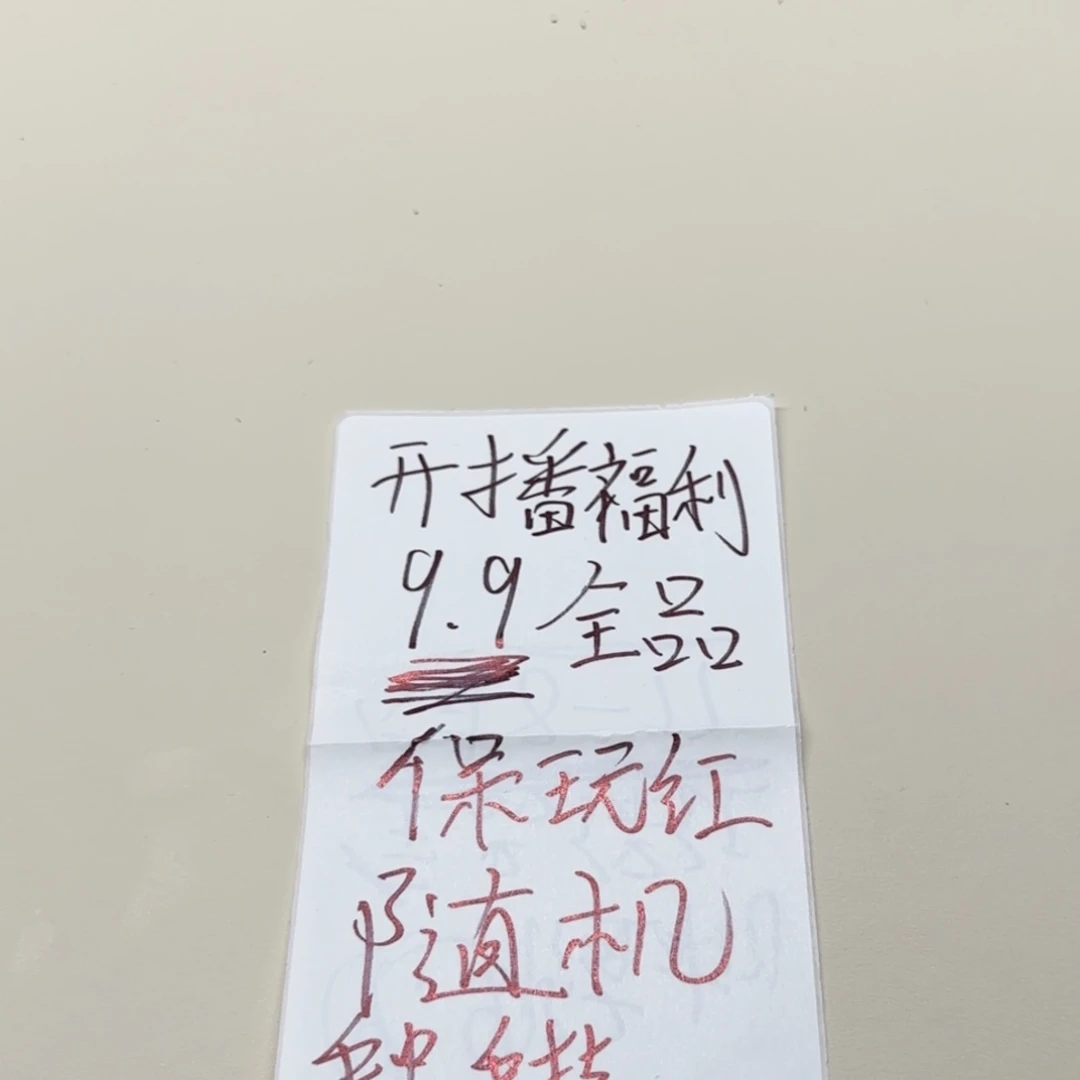 开播福利
9.9全品
保玩红
随机
种